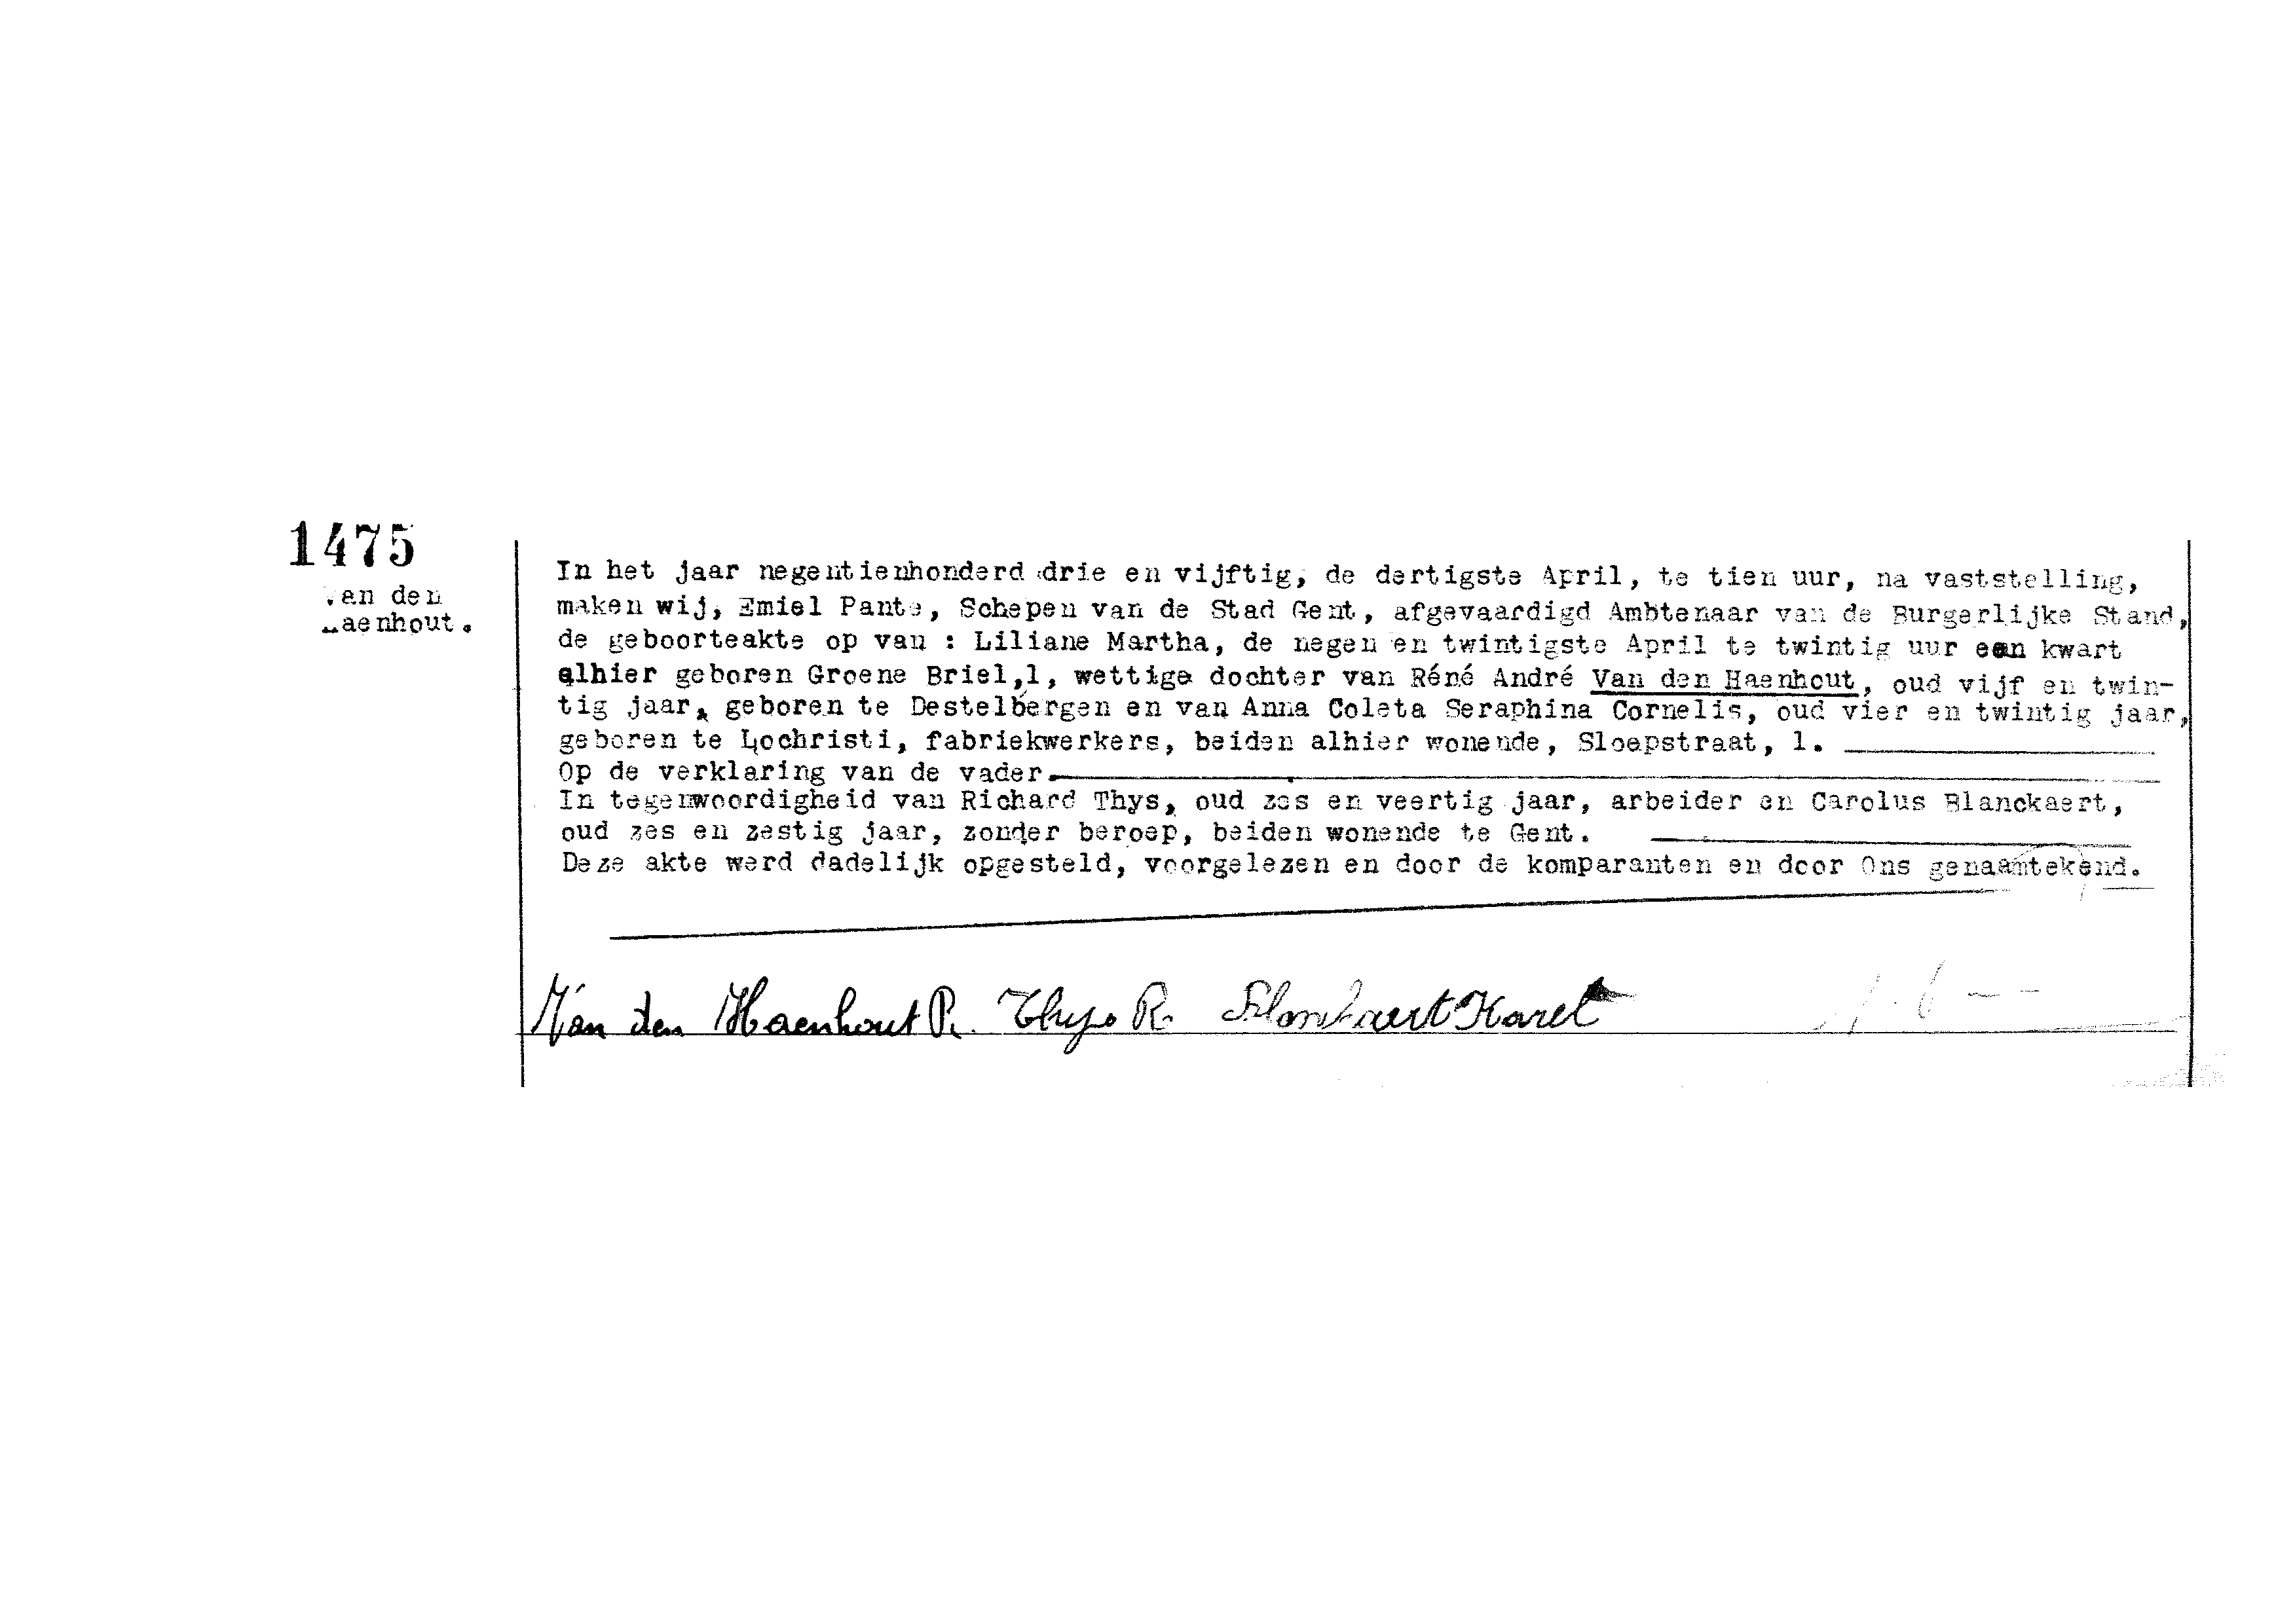 1475
Van den
Haenhout.
In het jaar negentienhonderd drie en vijftig, de dertigste April, te tien uur, na vaststelling,
maken wij, Emiel Pante, Schepen van de Stad Gent, afgevaardigd Ambtenaar van de Burgerlijke Stand,
de geboorteakte op van : Liliane Martha, de negen en twintigste April te twintig uur een kwart
alhier geboren Groene Briel,1, wettige dochter van Réné André Van den Haenhout, oud vijf en twin-
tig jaar, geboren te Destelbergen en van Anna Coleta Seraphina Cornelis, oud vier en twintig jaar,
geboren te Lochristi, fabriekwerkers, beiden alhier wonende, Sloepstraat, 1.
Op de verklaring van de vader.
In tegenwoordigheid van Richard Thys, oud zes en veertig jaar, arbeider en Carolus Blanckaert,
oud zes en zestig jaar, zonder beroep, beiden wonende te Gent.
Deze akte werd dadelijk opgesteld, voorgelezen en door de komparanten en door Ons genaamtekend.
Van den Haenhout R. Thys R. Blanckaert Karel